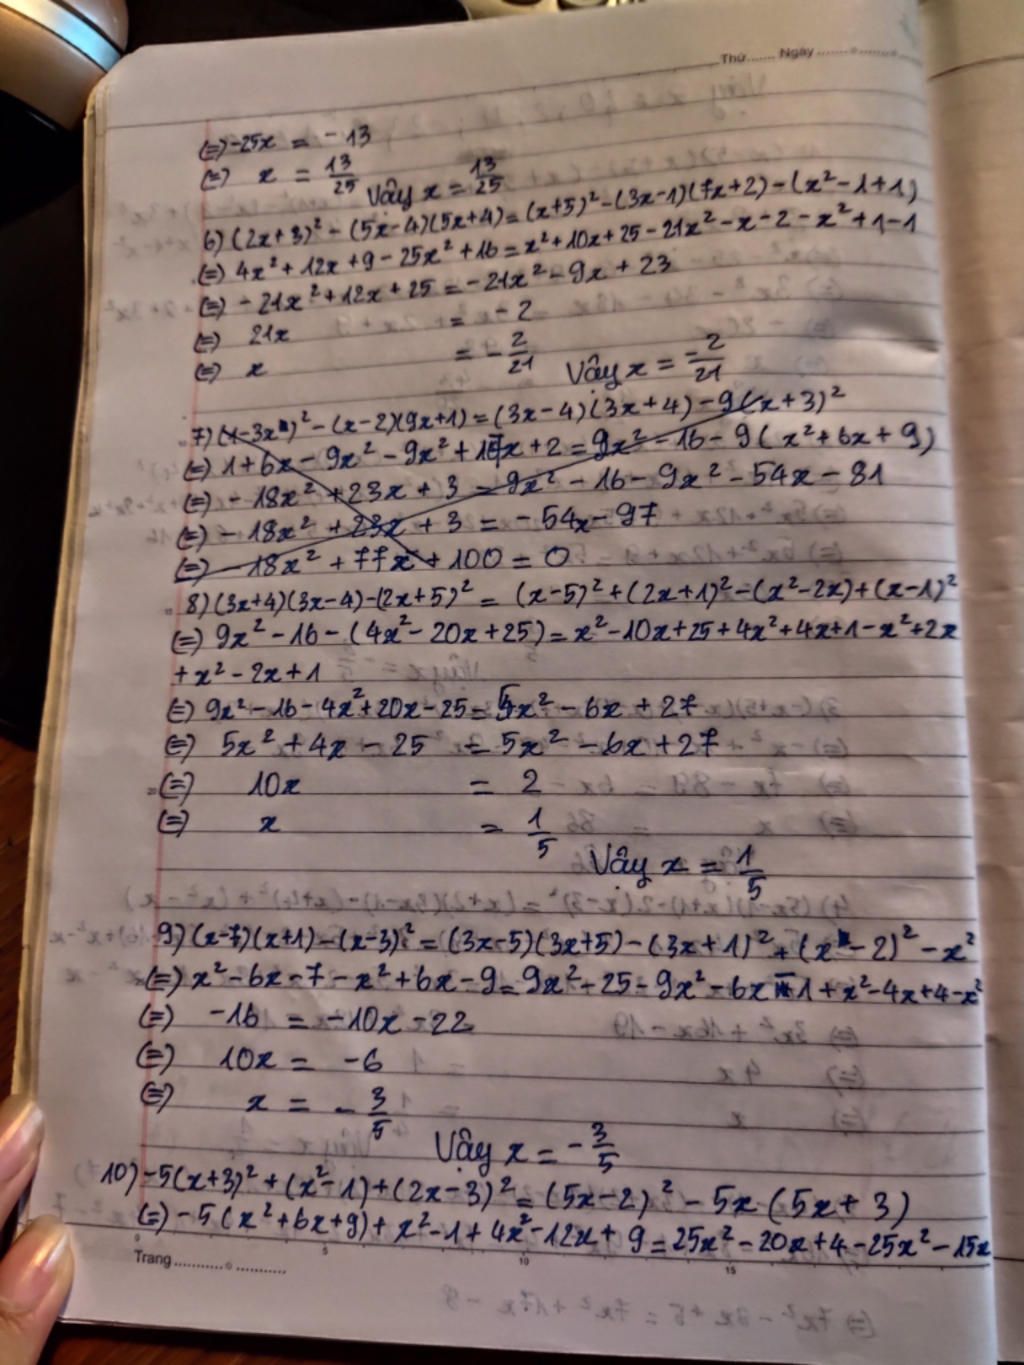 Thứ....... Ngày .......o.......
(=) -25x = -13
(=) x = 13/25 Vậy x = 13/25
6) (2x+3)² - (5x-4)(5x+4) = (x+5)² - (3x-1)(7x+2) - (x²-1+1)
(=) 4x² + 12x + 9 - 25x² + 16 = x² + 10x + 25 - 21x² - x - 2 - x² + 1 - 1
(=) - 21x² + 12x + 25 = -21x² - 9x + 23
(=) 21x = - 2
(=) x = - 2/21 Vậy x = -2/21
7) (1-3x)² - (x-2)(9x+1) = (3x-4)(3x+4) - 9(x+3)²
(=) 1 + 6x - 9x² - 9x² + 17x + 2 = 9x² - 16 - 9(x² + 6x + 9)
(=) - 18x² + 23x + 3 = 9x² - 16 - 9x² - 54x - 81
(=) - 18x² + 23x + 3 = - 54x - 97
(=) - 18x² + 77x + 100 = 0
8) (3x+4)(3x-4) - (2x+5)² = (x-5)² + (2x+1)² - (x²-2x) + (x-1)²
(=) 9x² - 16 - (4x² - 20x + 25) = x² - 10x + 25 + 4x² + 4x + 1 - x² + 2x
+ x² - 2x + 1
(=) 9x² - 16 - 4x² + 20x - 25 = 5x² - 6x + 27
(=) 5x² + 4x - 25 = 5x² - 6x + 27
(=) 10x = 2
(=) x = 1/5
Vậy x = 1/5
9) (x-7)(x+1) - (x-3)² = (3x-5)(3x+5) - (3x+1)² + (x-2)² - x²
(=) x² - 6x - 7 - x² + 6x - 9 = 9x² - 25 - 9x² - 6x - 1 + x² - 4x + 4 - x²
(=) -16 = -10x - 22
(=) 10x = -6
(=) x = - 3/5
Vậy x = - 3/5
10) -5(x+3)² + (x²-1) + (2x-3)² = (5x-2)² - 5x(5x+3)
(=) -5(x²+6x+9) + x² - 1 + 4x² - 12x + 9 = 25x² - 20x + 4 - 25x² - 15x
0 5 10 15
Trang...........o...........